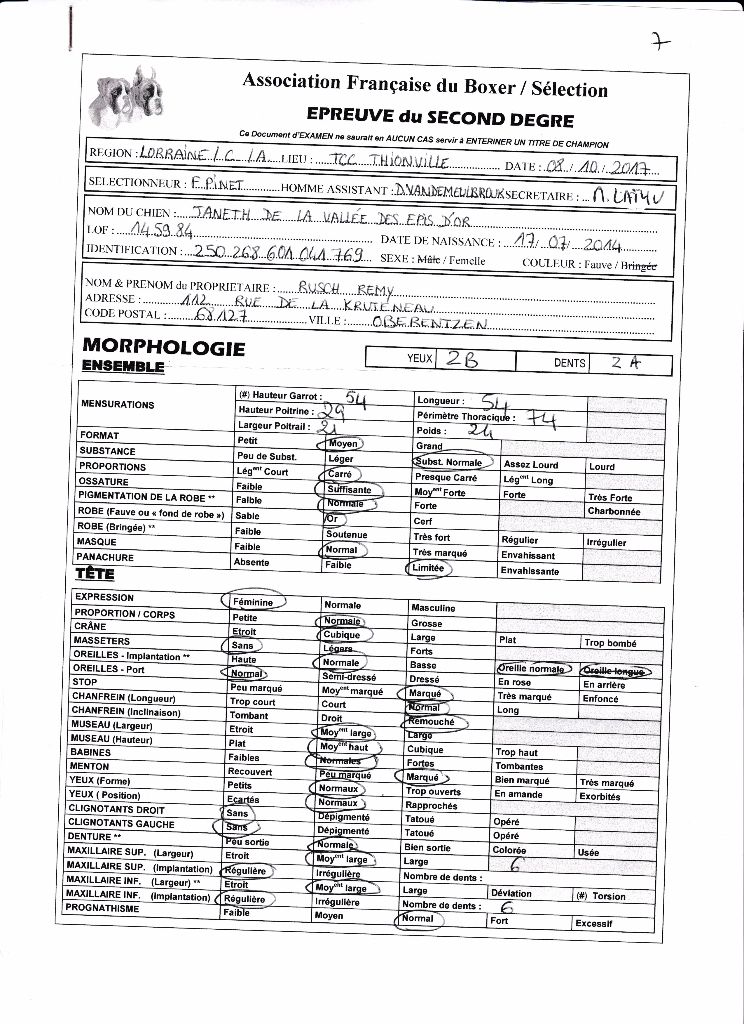 7
Association Française du Boxer / Sélection
EPREUVE du SECOND DEGRE
Ce Document d'EXAMEN ne saurait en AUCUN CAS servir à ENTERINER UN TITRE DE CHAMPION
REGION : LORRAINE / C. LA LIEU : TCC THIONVILLE DATE : 08 / 10 / 2017
SELECTIONNEUR : E. PINET HOMME ASSISTANT : D. VANDEMEULBROUK SECRETAIRE :
NOM DU CHIEN : JANETH DE LA VALLÉE DES EPIS D'OR
LOF : 145984 DATE DE NAISSANCE : 17 / 07 / 2014
IDENTIFICATION : 250 268 601 041 769 SEXE : Mâle / Femelle COULEUR : Fauve / Bringée
NOM & PRENOM du PROPRIETAIRE : RUSCH REMY
ADRESSE : 112 RUE DE LA KRUTENEAU
CODE POSTAL : 68127 VILLE : OBERENTZEN
MORPHOLOGIE YEUX 2B DENTS 2A
ENSEMBLE
MENSURATIONS (#) Hauteur Garrot : 54 Longueur : 54
Hauteur Poitrine : 29 Périmètre Thoracique : 74
Largeur Poitrail : 21 Poids : 24
FORMAT Petit Moyen Grand
SUBSTANCE Peu de Subst. Léger Subst. Normale Assez Lourd Lourd
PROPORTIONS Légent Court Carré Presque Carré Légent Long
OSSATURE Faible Suffisante Moyent Forte Forte Très Forte
PIGMENTATION DE LA ROBE ** Faible Normale Forte Charbonnée
ROBE (Fauve ou « fond de robe ») Sable Or Cerf
ROBE (Bringée) ** Faible Soutenue Très fort Régulier Irrégulier
MASQUE Faible Normal Très marqué Envahissant
PANACHURE Absente Faible Limitée Envahissante
TÊTE
EXPRESSION Féminine Normale Masculine
PROPORTION / CORPS Petite Normale Grosse
CRÂNE Etroit Cubique Large Plat Trop bombé
MASSETERS Sans Légers Forts
OREILLES - Implantation ** Haute Normale Basse Oreille normale Oreille longue
OREILLES - Port Normal Semi-dressé Dressé En rose En arrière
STOP Peu marqué Moyent marqué Marqué Très marqué Enfoncé
CHANFREIN (Longueur) Trop court Court Normal Long
CHANFREIN (Inclinaison) Tombant Droit Remouché
MUSEAU (Largeur) Etroit Moyent large Large
MUSEAU (Hauteur) Plat Moyent haut Cubique Trop haut
BABINES Faibles Normales Fortes Tombantes
MENTON Recouvert Peu marqué Marqué Bien marqué Très marqué
YEUX (Forme) Petits Normaux Trop ouverts En amande Exorbités
YEUX ( Position) Ecartés Normaux Rapprochés
CLIGNOTANTS DROIT Sans Dépigmenté Tatoué Opéré
CLIGNOTANTS GAUCHE Sans Dépigmenté Tatoué Opéré
DENTURE ** Peu sortie Normale Bien sortie Colorée Usée
MAXILLAIRE SUP. (Largeur) Etroit Moyent large Large
MAXILLAIRE SUP. (Implantation) Régulière Irrégulière Nombre de dents : 6
MAXILLAIRE INF. (Largeur) ** Etroit Moyent large Large Déviation (#) Torsion
MAXILLAIRE INF. (Implantation) Régulière Irrégulière Nombre de dents : 6
PROGNATHISME Faible Moyen Normal Fort Excessif